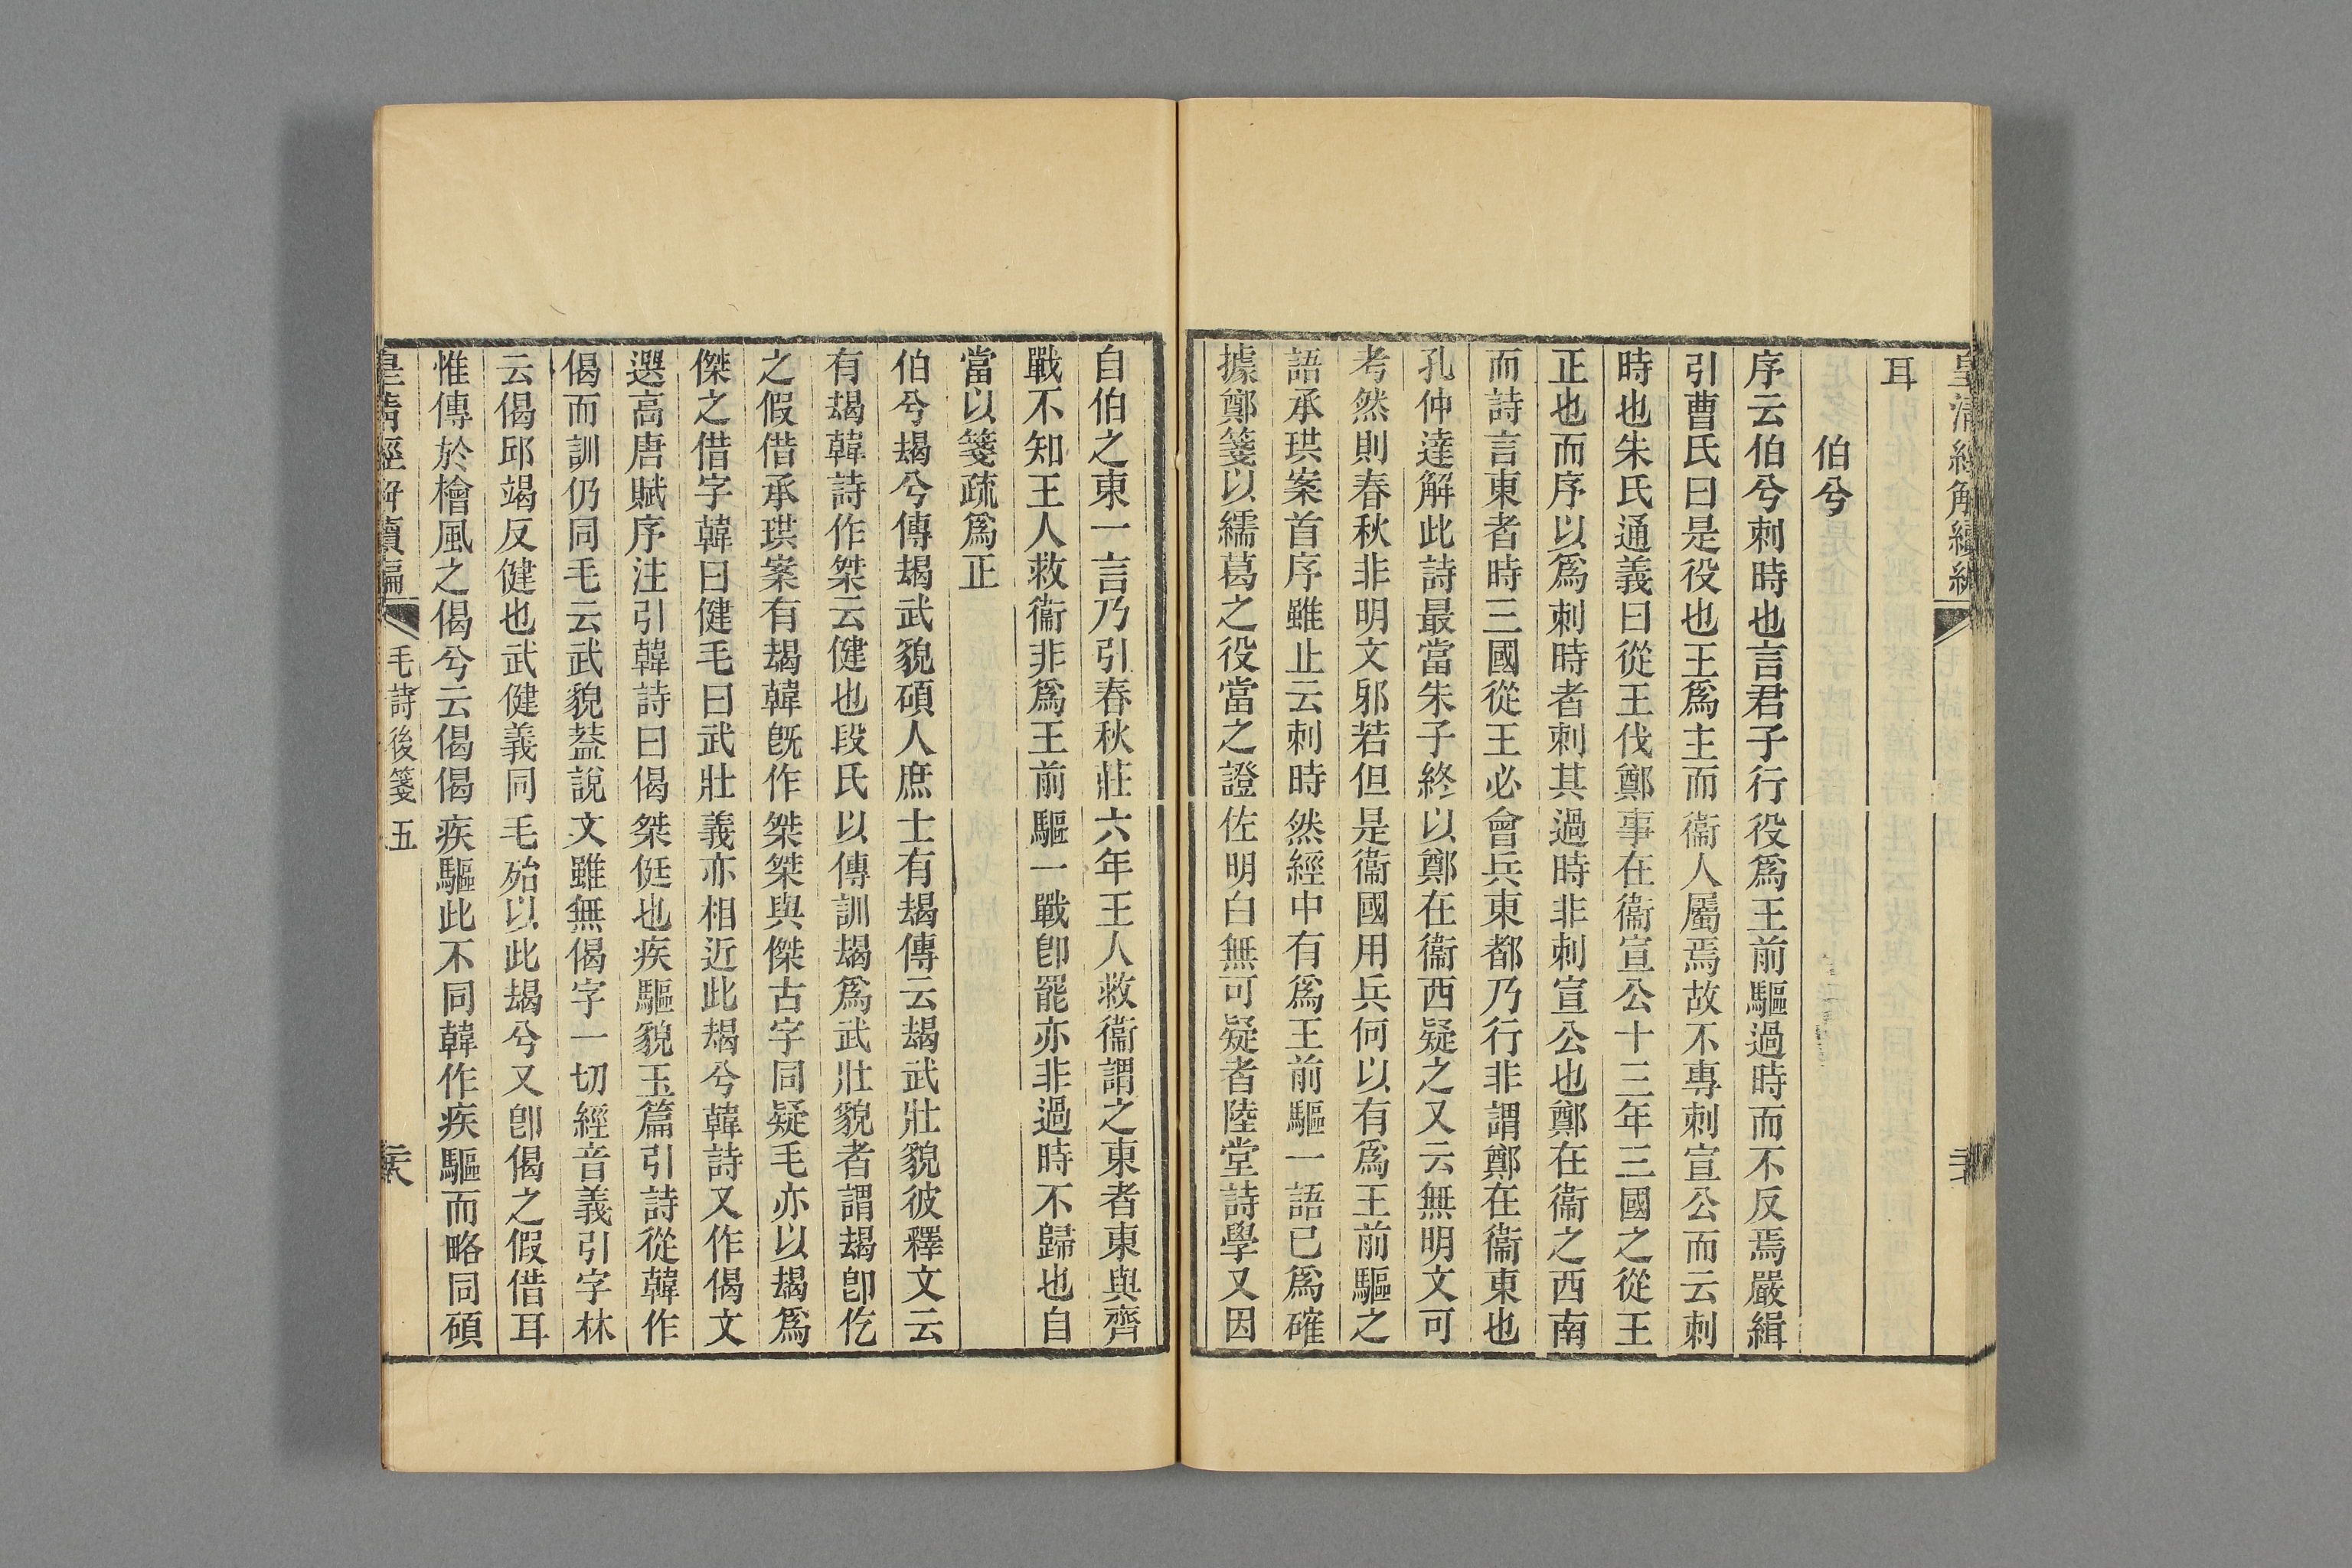 皇清經解續編
耳
伯兮
序云伯兮刺時也言君子行役爲王前驅過時而不反焉嚴緝
引曹氏曰是役也王爲主而衞人屬焉故不專刺宣公而云刺
時也朱氏通義曰從王伐鄭事在衞宣公十三年三國之從王
正也而序以爲刺時者刺其過時非刺宣公也鄭在衞之西南
而詩言東者時三國從王必會兵東都乃行非謂鄭在衞東也
孔仲達解此詩最當朱子終以鄭在衞西疑之又云無明文可
考然則春秋非明文邪若但是衞國用兵何以有爲王前驅之
語承珙案首序雖止云刺時然經中有爲王前驅一語已爲確
據鄭箋以繻葛之役當之證佐明白無可疑者陸堂詩學又因
自伯之東一言乃引春秋莊六年王人救衞謂之東者東與齊
戰不知王人救衞非爲王前驅一戰卽罷亦非過時不歸也自
當以箋疏爲正
伯兮朅兮傳朅武貌碩人庶士有朅傳云朅武壯貌彼釋文云
有朅韓詩作桀云健也段氏以傳訓朅爲武壯貌者謂朅卽仡
之假借承珙案有朅韓旣作桀桀與傑古字同疑毛亦以朅爲
傑之借字韓曰健毛曰武壯義亦相近此朅兮韓詩又作偈文
選高唐賦序注引韓詩曰偈桀侹也疾驅貌玉篇引詩從韓作
偈而訓仍同毛云武貌葢說文雖無偈字一切經音義引字林
云偈邱竭反健也武健義同毛殆以此朅兮又卽偈之假借耳
惟傳於檜風之偈兮云偈偈疾驅此不同韓作疾驅而略同碩
皇清經解續編
毛詩後箋五